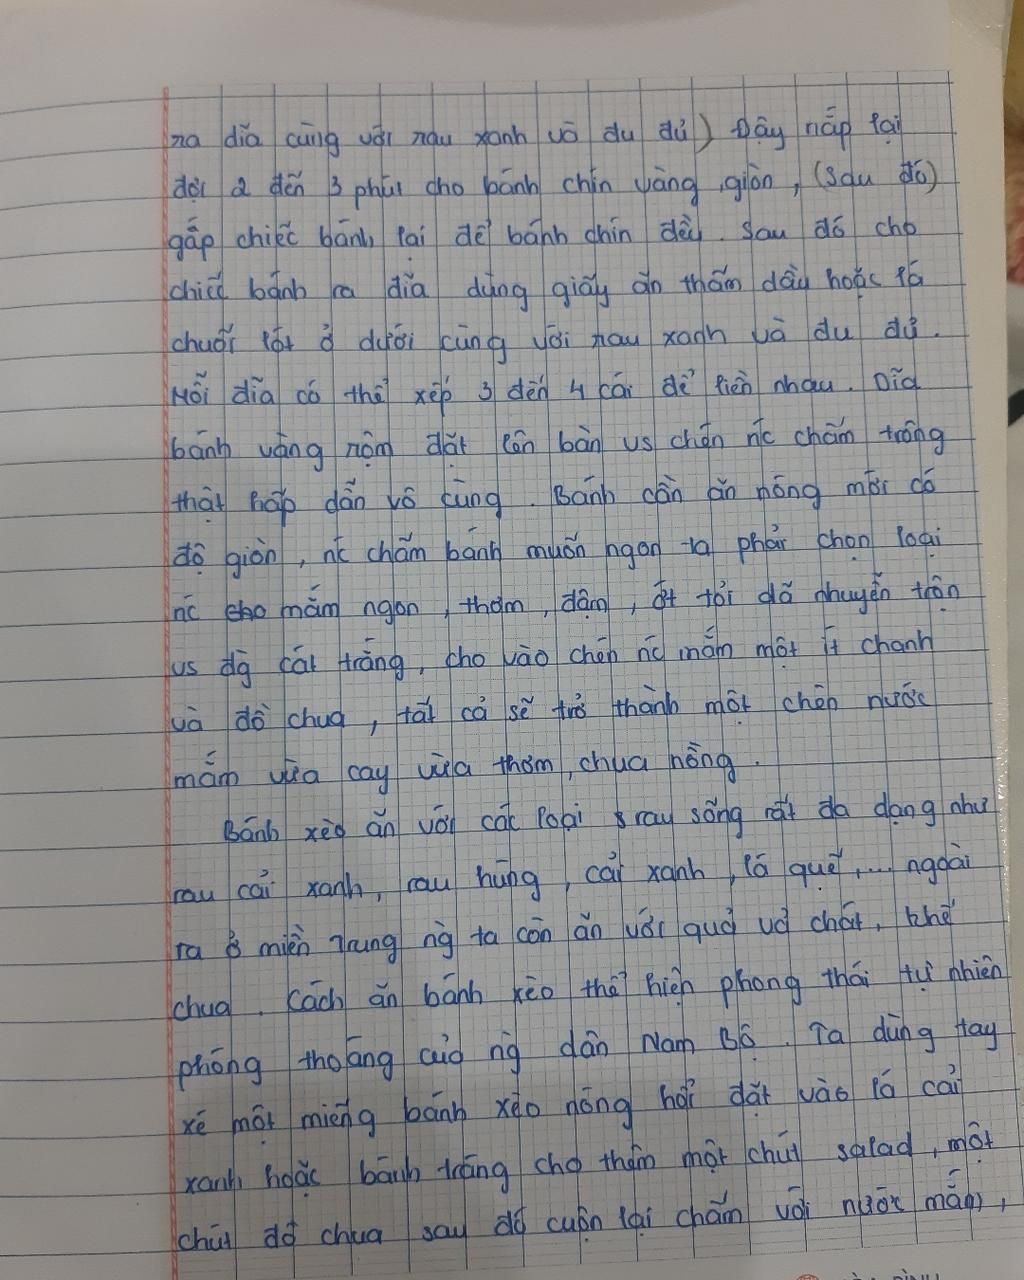 ra dĩa cùng với rau xanh và du đủ) Đậy nắp lại
đợi 2 đến 3 phút cho bánh chín vàng, giòn, (sau đó)
gấp chiếc bánh lại để bánh chín đều. Sau đó cho
chiếc bánh ra đĩa dùng giấy ăn thấm dầu hoặc lá
chuối lót ở dưới cùng với rau xanh và du đủ.
Mỗi dĩa có thể xếp 3 đến 4 cái để liền nhau. Dĩa
bánh vàng rộm đặt lên bàn vs chén nc chấm trông
thật hấp dẫn vô cùng. Bánh cần ăn nóng mới có
độ giòn, nc chấm bánh muốn ngon ta phải chọn loại
nc mắm ngon, thơm, đậm, ớt tỏi dã nhuyễn trộn
vs đg cát trắng, cho vào chén nc mắm một ít chanh
và đồ chua, tất cả sẽ trở thành một chén nước
mắm vừa cay vừa thơm, chua nồng.
Bánh xèo ăn với các loại rau sống rất đa dạng như
rau cải xanh, rau húng, cải xanh, lá quế,... ngoài
ra ở miền Trung ng ta còn ăn với quả vả chát, khế
chua. Cách ăn bánh xèo thể hiện phong thái tự nhiên
phóng thoáng của ng dân Nam Bộ. Ta dùng tay
xé một miếng bánh xèo nóng hổi đặt vào lá cải
xanh hoặc bánh tráng cho thêm một chút salad, một
chút đồ chua sau đó cuộn lại chấm với nước mắm,